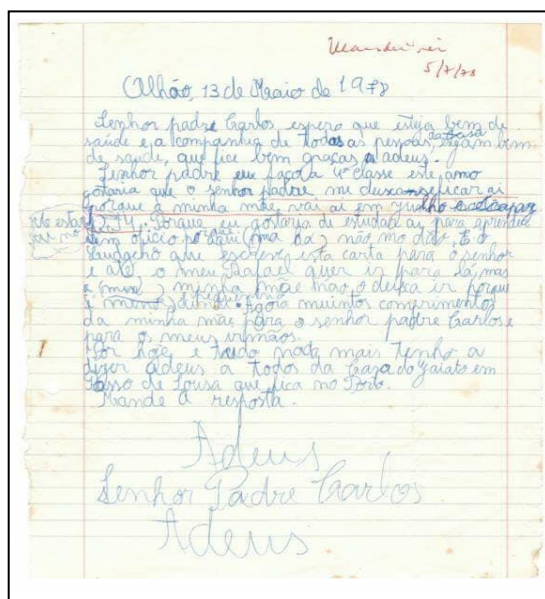 5/7/78
Olhão, 13 de Maio de 1978
Senhor padre Carlos espero que esteja bem de
saúde e a companhia de todas as pessoas da casa, bem
de saúde, que fico bem graças a adeus.
Senhor padre eu faço a 4ª classe este ano
gostaria que o senhor padre me deixasse ficar ai
porque a minha mãe vai ai em
Porque eu gostaria de estudar ai para aprender
um oficio não mo dão. E o
que escreve esta carta para o senhor
e até o meu Rafael quer ir para lá, mas
a minha mãe não o deixa ir porque
é Agora muintos comprimentos
da minha mãe para o senhor padre Carlos e
para os meus irmãos.
Por hoje e tudo nada mais tenho a
dizer adeus a todos da Casa do Gaiato em
Passo de Sousa que fica no Porto.
Mande a resposta.
Adeus
Senhor Padre Carlos
Adeus